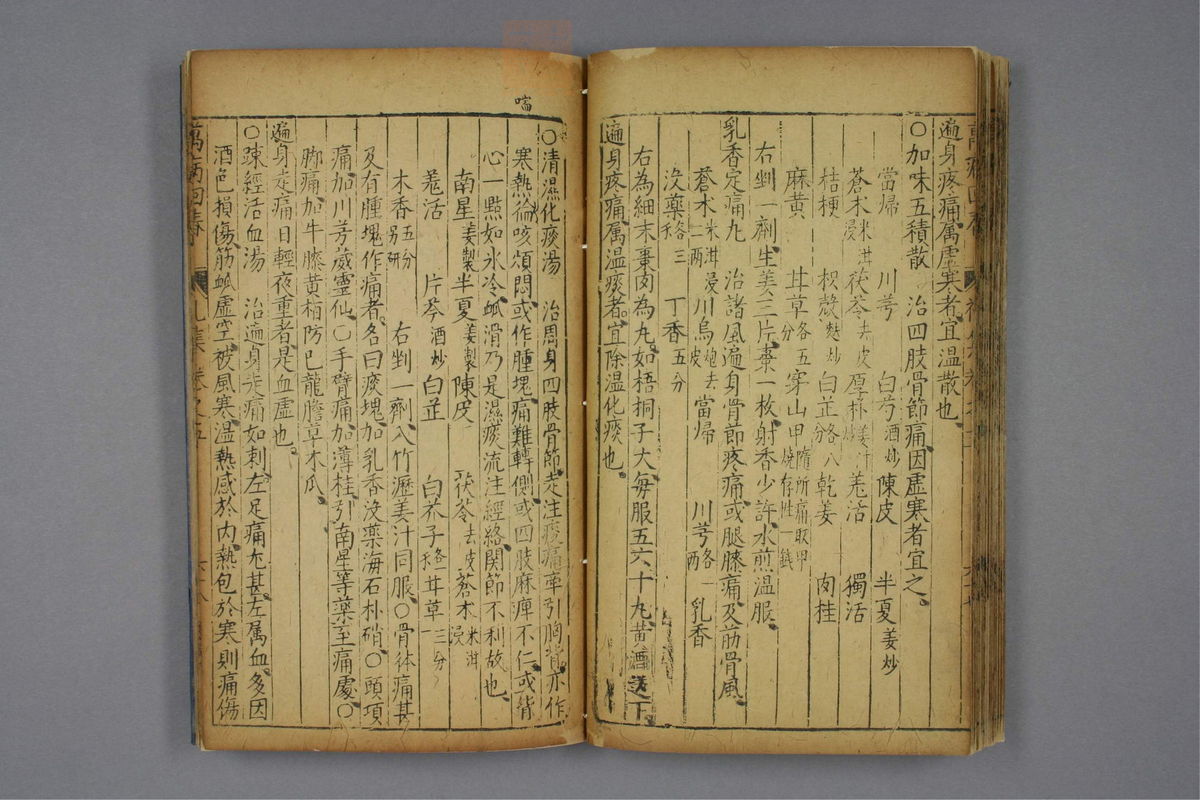 遍身疼痛属虛寒者宜温散也
○加味五積散　治四肢骨節痛因虛寒者宜之
當帰　川芎　白芍酒炒　陳皮　半夏姜炒
蒼术米泔浸　茯苓去皮　厚朴姜汁炒　羌活　獨活
桔梗　枳殻麩炒　白芷各八分　乾姜　肉桂
麻黄　甘草各五分　穿山甲隨所痛取甲燒存性一錢
右剉一劑生姜三片棗一枚射香少許水煎温服
乳香定痛丸　治諸風遍身骨節疼痛或腿膝痛及筋骨風
蒼术米泔浸二兩　川烏炮去皮　當帰　川芎各一兩　乳香
没藥各三　丁香五分
右為細末棗肉為丸如梧桐子大每服五六十丸黄酒送下
遍身疼痛属温痰者宜除温化痰也
喘
○清濕化痰湯　治周身四肢骨節走注疼痛牽引胸背亦作
寒熱喘咳煩悶或作腫塊痛難轉側或四肢麻痺不仁或背
心一點如氷冷脉滑乃是濕痰流注經絡關節不利故也
南星姜製　半夏姜製　陳皮　茯苓去皮　蒼术米泔浸
羌活　片芩酒炒　白芷　白芥子各一　甘草三分
木香五分另研　右剉一劑入竹瀝姜汁同服○骨体痛甚
及有腫塊作痛者名曰痰塊加乳香没藥海石朴硝○頭項
痛加川芎威靈仙○手臂痛加薄桂引南星等藥至痛處○
脚痛加牛膝黄栢防已龍膽草木瓜
遍身走痛日輕夜重者是血虛也
○踈經活血湯　治遍身走痛如刺左足痛尤甚左属血多因
酒色損傷筋脉虛空被風寒温熱感於内熱包於寒則痛傷
萬病回春　卷之五　六十八